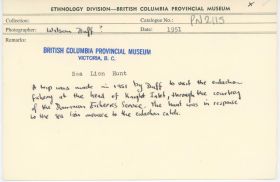 ETHNOLOGY DIVISION—BRITISH COLUMBIA PROVINCIAL MUSEUM
Collection: Catalogue No.: PN 2115
Photographer: Wilson Duff? Date: 1951
Remarks:
BRITISH COLUMBIA PROVINCIAL MUSEUM
VICTORIA, B. C.
Sea Lion Hunt
A trip was made in 1951 by Duff to visit the eulachon
fishery at the head of Knight Inlet, through the courtesy
of the Dominion Fisheries Service. The hunt was in response
to the sea lion menace to the eulachon catch.